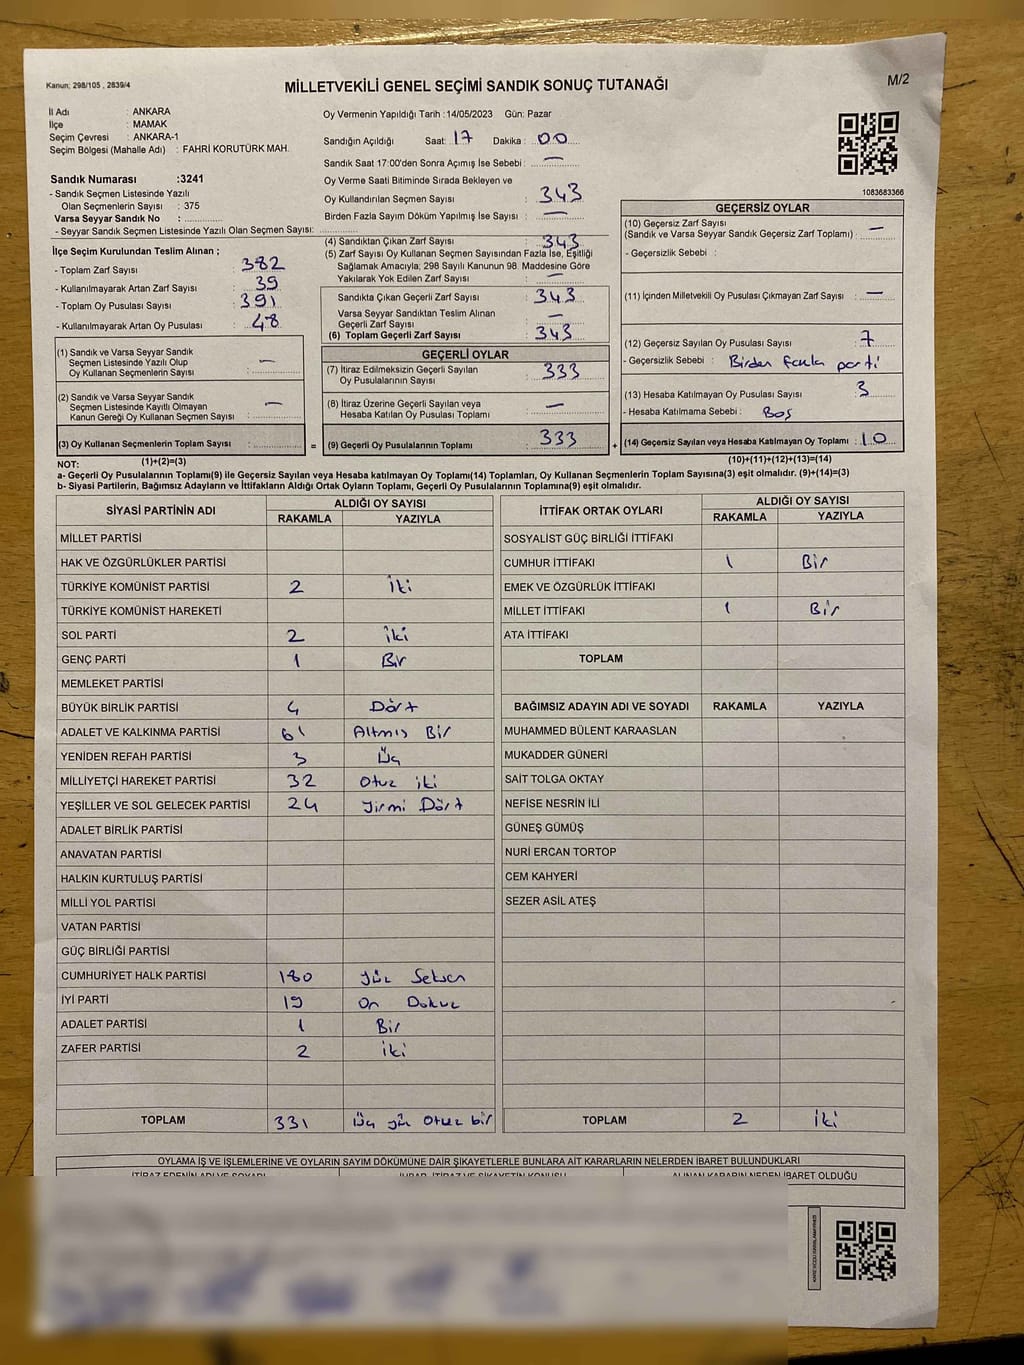 Kanun; 298/105 , 2839/4
MİLLETVEKİLİ GENEL SEÇİMİ SANDIK SONUÇ TUTANAĞI
M/2
İl Adı : ANKARA
İlçe : MAMAK
Seçim Çevresi : ANKARA-1
Seçim Bölgesi (Mahalle Adı) : FAHRİ KORUTÜRK MAH.
Sandık Numarası :3241
- Sandık Seçmen Listesinde Yazılı
Olan Seçmenlerin Sayısı : 375
Varsa Seyyar Sandık No :
- Seyyar Sandık Seçmen Listesinde Yazılı Olan Seçmen Sayısı:
İlçe Seçim Kurulundan Teslim Alınan ;
- Toplam Zarf Sayısı : 382
- Kullanılmayarak Artan Zarf Sayısı : 39
- Toplam Oy Pusulası Sayısı : 391
- Kullanılmayarak Artan Oy Pusulası : 48
(1) Sandık ve Varsa Seyyar Sandık
Seçmen Listesinde Yazılı Olup
Oy Kullanan Seçmenlerin Sayısı : —
(2) Sandık ve Varsa Seyyar Sandık
Seçmen Listesinde Kayıtlı Olmayan
Kanun Gereği Oy Kullanan Seçmen Sayısı : —
(3) Oy Kullanan Seçmenlerin Toplam Sayısı :
Oy Vermenin Yapıldığı Tarih :14/05/2023 Gün: Pazar
Sandığın Açıldığı Saat: 17 Dakika : 00
Sandık Saat 17:00'den Sonra Açımış İse Sebebi : —
Oy Verme Saati Bitiminde Sırada Bekleyen ve
Oy Kullandırılan Seçmen Sayısı : 343
Birden Fazla Sayım Döküm Yapılmış İse Sayısı : —
(4) Sandıktan Çıkan Zarf Sayısı : 343
(5) Zarf Sayısı Oy Kullanan Seçmen Sayısından Fazla İse, Eşitliği
Sağlamak Amacıyla; 298 Sayılı Kanunun 98. Maddesine Göre
Yakılarak Yok Edilen Zarf Sayısı : —
Sandıkta Çıkan Geçerli Zarf Sayısı : 343
Varsa Seyyar Sandıktan Teslim Alınan
Geçerli Zarf Sayısı : —
(6) Toplam Geçerli Zarf Sayısı : 343
GEÇERLİ OYLAR
(7) İtiraz Edilmeksizin Geçerli Sayılan
Oy Pusulalarının Sayısı : 333
(8) İtiraz Üzerine Geçerli Sayılan veya
Hesaba Katılan Oy Pusulası Toplamı : —
= (9) Geçerli Oy Pusulalarının Toplamı : 333 +
1083683366
GEÇERSİZ OYLAR
(10) Geçersiz Zarf Sayısı
(Sandık ve Varsa Seyyar Sandık Geçersiz Zarf Toplamı) : —
- Geçersizlik Sebebi :
(11) İçinden Milletvekili Oy Pusulası Çıkmayan Zarf Sayısı : —
(12) Geçersiz Sayılan Oy Pusulası Sayısı : 7
- Geçersizlik Sebebi : Birden fazla parti
(13) Hesaba Katılmayan Oy Pusulası Sayısı : 3
- Hesaba Katılmama Sebebi : Boş
(14) Geçersiz Sayılan veya Hesaba Katılmayan Oy Toplamı : 10
NOT: (1)+(2)=(3) (10)+(11)+(12)+(13)=(14)
a- Geçerli Oy Pusulalarının Toplamı(9) ile Geçersiz Sayılan veya Hesaba katılmayan Oy Toplamı(14) Toplamları, Oy Kullanan Seçmenlerin Toplam Sayısına(3) eşit olmalıdır. (9)+(14)=(3)
b- Siyasi Partilerin, Bağımsız Adayların ve İttifakların Aldığı Ortak Oyların Toplamı, Geçerli Oy Pusulalarının Toplamına(9) eşit olmalıdır.
SİYASİ PARTİNİN ADI ALDIĞI OY SAYISI
RAKAMLA YAZIYLA
MİLLET PARTİSİ
HAK VE ÖZGÜRLÜKLER PARTİSİ
TÜRKİYE KOMÜNİST PARTİSİ 2 İki
TÜRKİYE KOMÜNİST HAREKETİ
SOL PARTİ 2 iki
GENÇ PARTİ 1 Bir
MEMLEKET PARTİSİ
BÜYÜK BİRLİK PARTİSİ 4 Dört
ADALET VE KALKINMA PARTİSİ 61 Altmış Bir
YENİDEN REFAH PARTİSİ 3 Üç
MİLLİYETÇİ HAREKET PARTİSİ 32 Otuz iki
YEŞİLLER VE SOL GELECEK PARTİSİ 24 Yirmi Dört
ADALET BİRLİK PARTİSİ
ANAVATAN PARTİSİ
HALKIN KURTULUŞ PARTİSİ
MİLLİ YOL PARTİSİ
VATAN PARTİSİ
GÜÇ BİRLİĞİ PARTİSİ
CUMHURİYET HALK PARTİSİ 180 Yüz Seksen
İYİ PARTİ 19 On Dokuz
ADALET PARTİSİ 1 Bir
ZAFER PARTİSİ 2 iki
TOPLAM 331 Üç yüz Otuz bir
İTTİFAK ORTAK OYLARI ALDIĞI OY SAYISI
RAKAMLA YAZIYLA
SOSYALIST GÜÇ BİRLİĞİ İTTİFAKI
CUMHUR İTTİFAKI 1 Bir
EMEK VE ÖZGÜRLÜK İTTİFAKI
MİLLET İTTİFAKI 1 Bir
ATA İTTİFAKI
TOPLAM
BAĞIMSIZ ADAYIN ADI VE SOYADI RAKAMLA YAZIYLA
MUHAMMED BÜLENT KARAASLAN
MUKADDER GÜNERİ
SAİT TOLGA OKTAY
NEFİSE NESRİN İLİ
GÜNEŞ GÜMÜŞ
NURİ ERCAN TORTOP
CEM KAHYERİ
SEZER ASİL ATEŞ
TOPLAM 2 İki
OYLAMA İŞ VE İŞLEMLERİNE VE OYLARIN SAYIM DÖKÜMÜNE DAİR ŞİKAYETLERLE BUNLARA AİT KARARLARIN NELERDEN İBARET BULUNDUKLARI
İTİRAZ EDENİN ADI VE SOYADI İHBAR, İTİRAZ VE ŞİKAYETİN KONUSU ALINAN KARARIN NEDEN İBARET OLDUĞU